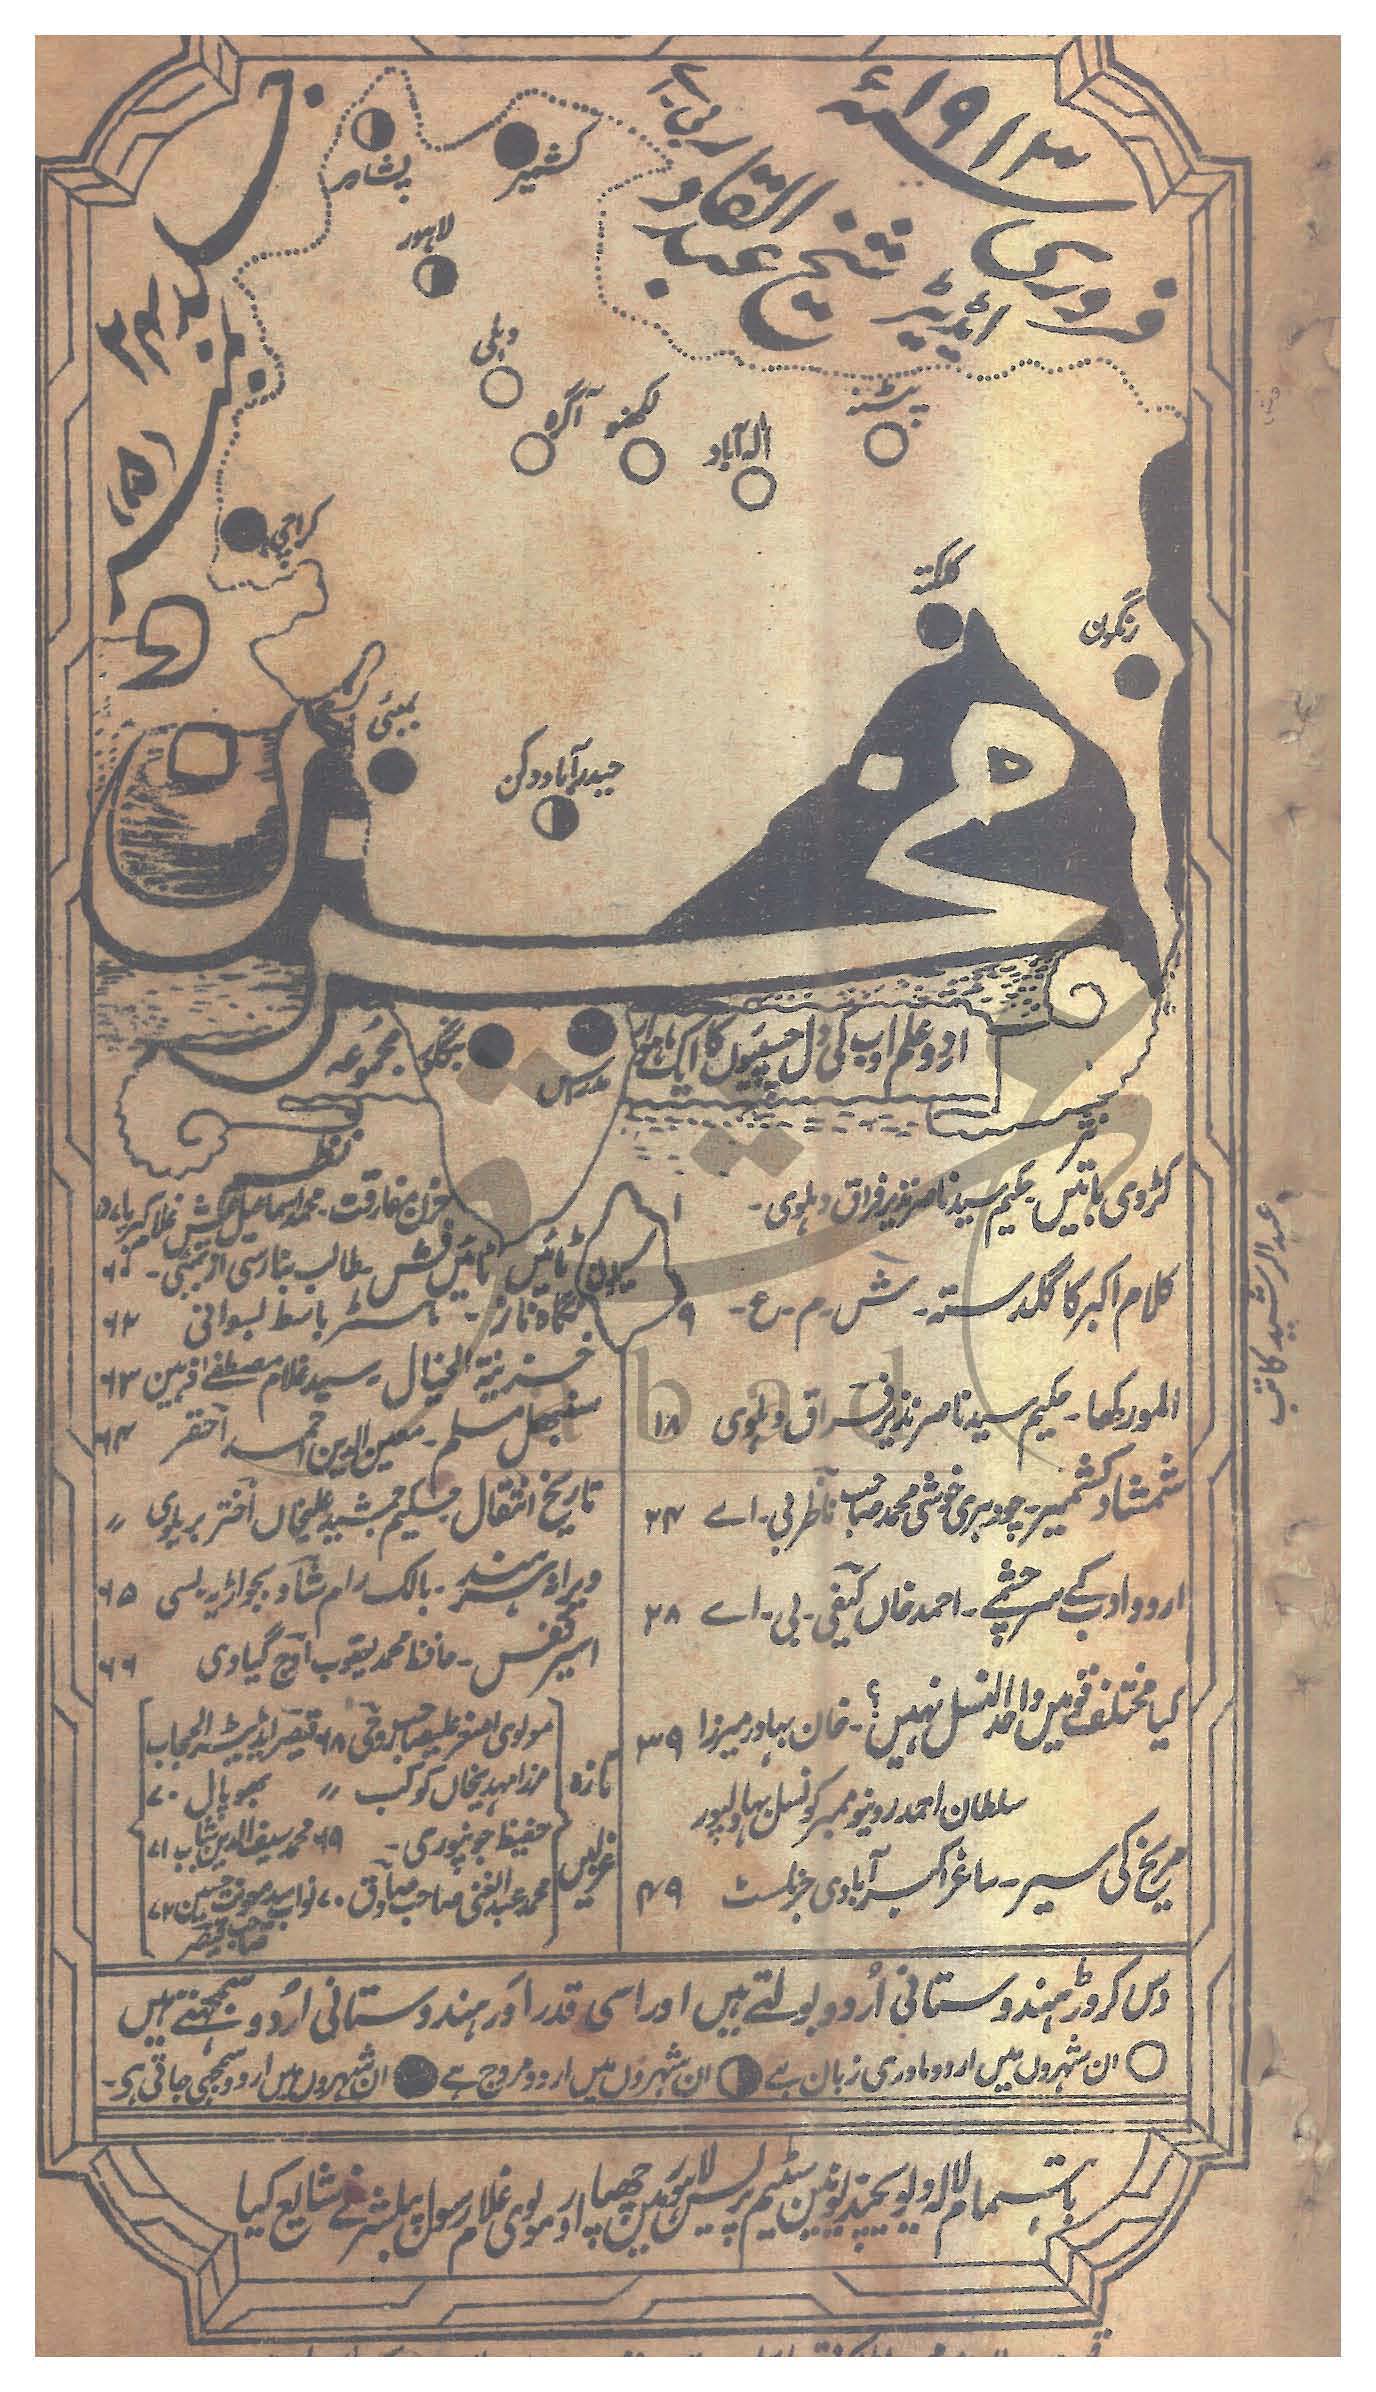 فروری ۱۹۱۴ئہ
ایڈیٹر شیخ عبدالقادر بی۔اے
جلد ۲۶
نمبر (۵)
مخزن
پشاور
کشمیر
لاہور
دہلی
آگرہ
لکھنو
الہ آباد
پٹنہ
کراچی
کلکتہ
رنگون
بمبئی
حیدرآباد دکن
بنگلور
مدراس
سیلون
اردو علم ادب کی دل چسپیوں کا ایک ماہوار
مجموعہ
نثر
کڑوی باتیں۔ حکیم سید ناصر نذیر فراق دہلوی۔ ۱
کلام اکبر کا گلدستہ۔ ش۔م۔ع۔ ۹
المور یکھا۔ حکیم سید ناصر نذیر فراق دہلوی ۱۸
شمشاد کشمیر۔ چودہری خوشی محمد صاحب ناظر بی۔اے ۲۴
اردو ادب کے سرچشمے۔ احمد خاں کیفی۔ بی۔اے ۲۸
کیا مختلف قومیں واحد النسل نہیں؟۔ خان بہادر میرزا ۳۹
سلطان احمد ریونیو ممبر کونسل بہاولپور
مریخ کی سیر۔ ساغر اکبر آبادی جرنلسٹ ۴۹
نظم
حزن مفارقت۔ محمد اسماعیل
ٹائیں ٹائیں فش۔ طالب بنارسی از بمبئی۔ ۶۰
نگاہ ناز۔ ماسٹر باسط بسوانی ۶۲
خزینۃ الخیال۔ سید غلام مصطفے ذہین ۶۳
سنبھل مسلم۔ معین الدین احمد احقر ۶۴
تاریخ انتقال حکیم جمشید علیخاں اختر بریلوی ״
ویرانہ سرہند۔ بالک رام شاد بجواڑیہ بسی ۶۵
اسیر قفس۔ حافظ محمد یعقوب اوج گیاوی ۶۶
تازہ غزلیں
مولوی اصغر علیصاحب روحی ۶۸ قیصر ایڈیٹر الحجاب
مرزا مہدیخاں کوکب ״ بھوپال ۷۰
حفیظ جونپوری۔ ۶۹ محمد سیف الدین شباب ۷۱
محمد عبدالغنی صاحب صادق ۷۰ نواب سید معونت حسین ۷۲
صاحب قیصر
دس کروڑ ہندوستانی اُردو بولتے ہیں اور اسی قدر اَور ہندوستانی اُردو سمجھتے ہیں
ان شہروں میں اردو مادری زبان ہے ان شہروں میں اردو مروج ہے ان شہروں میں اردو سمجھی جاتی ہی۔
باہتمام لالہ دیویچند یونین سٹیم پریس لاہور میں چھپا اور مولوی غلام رسول پبلشر نے شایع کیا
عبدالرشید کاتب